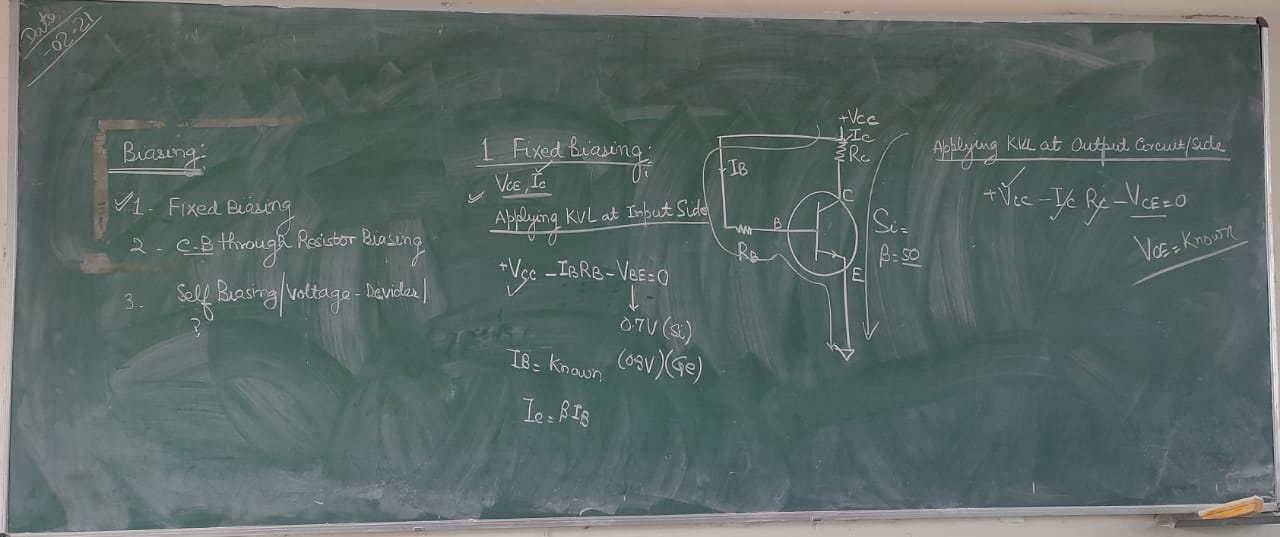 Date
-02-21
Biasing:
✓1. Fixed Biasing
2. C-B through Resistor Biasing
3. Self Biasing/Voltage-Devider/
?
1 Fixed Biasing:
VCE, IC
Applying KVL at Input Side
+VCC - IBRB - VBE = 0
0.7V (Si)
IB = Known (0.3V)(Ge)
IC = βIB
+VCC
IC
RC
IB
C
B
RB
E
Si =
β = 50
Applying KVL at Output Circuit/Side
+VCC - IC RC - VCE = 0
VCE = Known